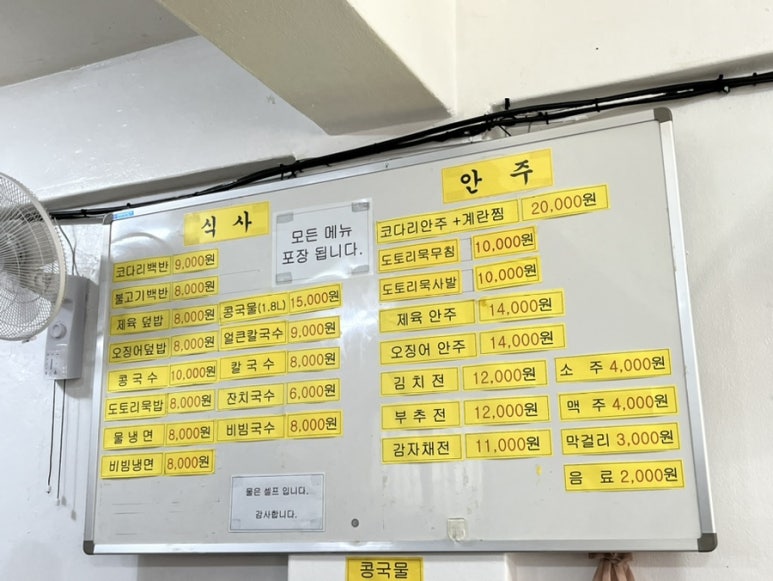 식 사
모든 메뉴
포장 됩니다.
코다리백반 9,000원
불고기백반 8,000원
제육 덮밥 8,000원
오징어덮밥 8,000원
콩 국 수 10,000원
도토리묵밥 8,000원
물 냉 면 8,000원
비빔냉면 8,000원
콩국물(1.8L) 15,000원
얼큰칼국수 9,000원
칼 국 수 8,000원
잔치국수 6,000원
비빔국수 8,000원
물은 셀프 입니다.
감사합니다.
안 주
코다리안주 +계란찜 20,000원
도토리묵무침 10,000원
도토리묵사발 10,000원
제육 안주 14,000원
오징어 안주 14,000원
김 치 전 12,000원
부 추 전 12,000원
감자채전 11,000원
소 주 4,000원
맥 주 4,000원
막걸리 3,000원
음 료 2,000원
콩국물